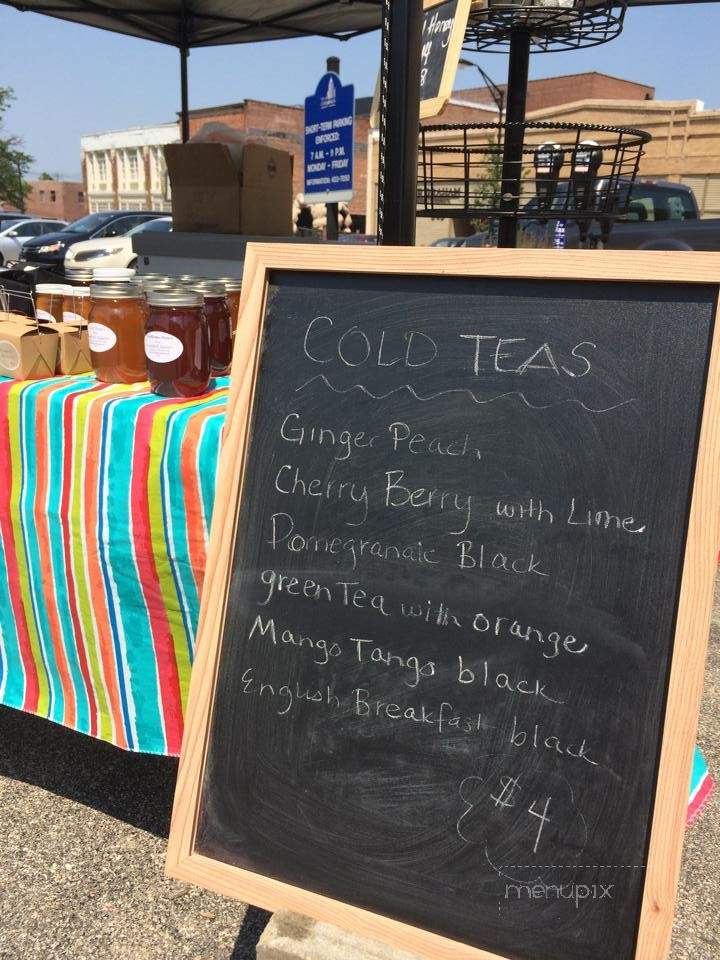 Honey
4
8
SHORT-TERM PARKING
ENFORCED:
7 A.M. - 9 P.M.
MONDAY - FRIDAY
COLD TEAS
Ginger Peach
Cherry Berry with Lime
Pomegranate Black
green Tea with orange
Mango Tango black
English Breakfast black
$4
menupix